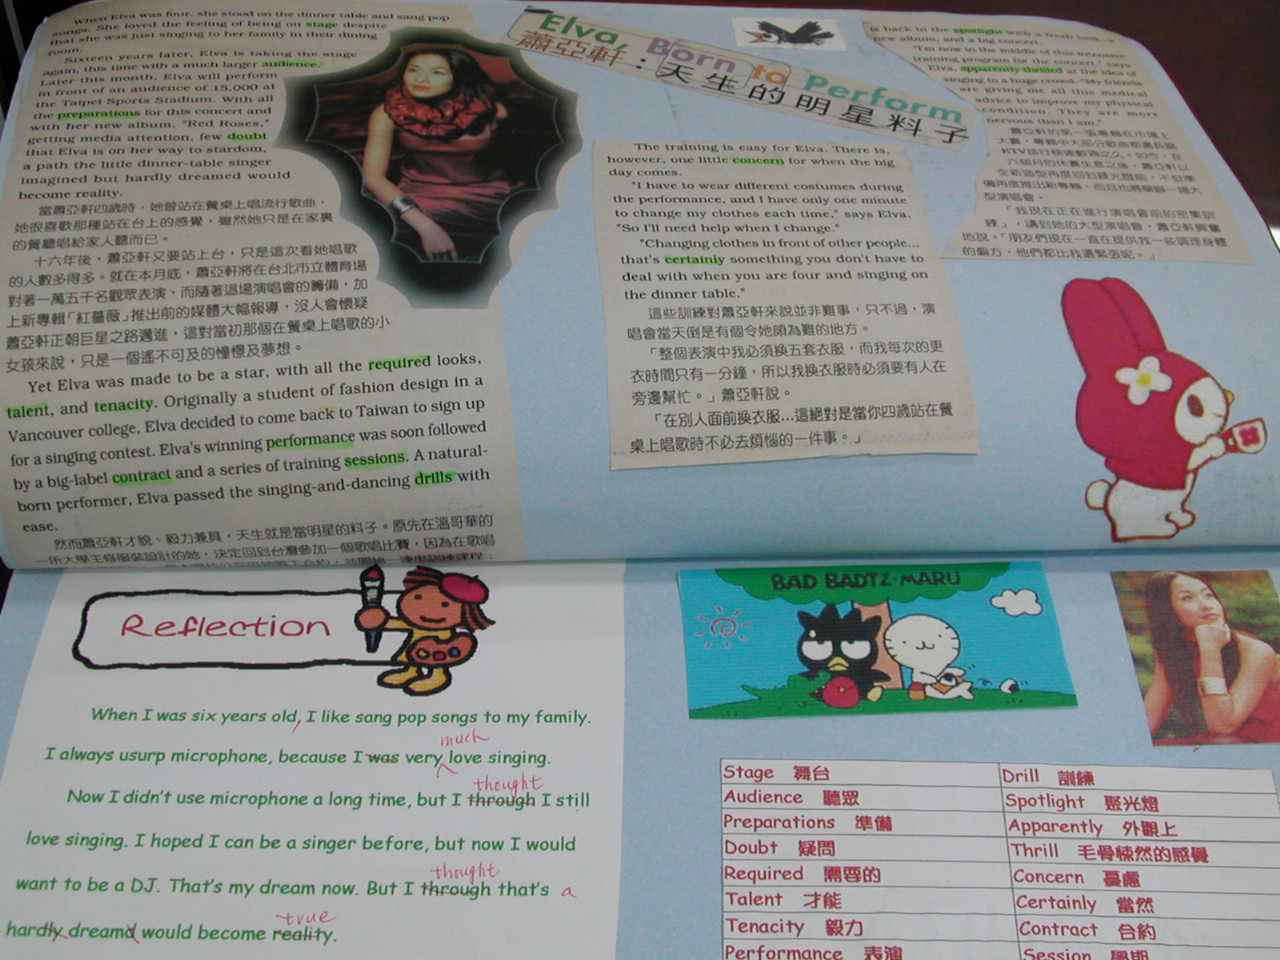 When Elva was four, she stood on the dinner table and sang pop
songs. She loved the feeling of being on stage despite
that she was just singing to her family in their dining
room.
Sixteen years later, Elva is taking the stage
again, this time with a much larger audience.
Later this month, Elva will perform
in front of an audience of 15,000 at
the Taipei Sports Stadium. With all
the preparations for this concert and
with her new album, "Red Roses,"
getting media attention, few doubt
that Elva is on her way to stardom,
a path the little dinner-table singer
imagined but hardly dreamed would
become reality.
當蕭亞軒四歲時,她曾站在餐桌上唱流行歌曲,
她很喜歡那種站在台上的感覺,雖然她只是在家裏
的餐廳唱給家人聽而已。
十六年後,蕭亞軒又要站上台,只是這次看她唱歌
的人數多得多。就在本月底,蕭亞軒將在台北市立體育場
對著一萬五千名觀眾表演,而隨著這場演唱會的籌備,加
上新專輯「紅薔薇」推出前的媒體大幅報導,沒人會懷疑
蕭亞軒正朝巨星之路邁進,這對當初那個在餐桌上唱歌的小
女孩來說,只是一個遙不可及的憧憬及夢想。
Yet Elva was made to be a star, with all the required looks,
talent, and tenacity. Originally a student of fashion design in a
Vancouver college, Elva decided to come back to Taiwan to sign up
for a singing contest. Elva's winning performance was soon followed
by a big-label contract and a series of training sessions. A natural-
born performer, Elva passed the singing-and-dancing drills with
ease.
然而蕭亞軒才貌、毅力兼具,天生就是當明星的料子。原先在溫哥華的
一所大學主修服裝設計的她,決定回到台灣參加一個歌唱比賽,因為在歌唱
Elva, Born to Perform
蕭亞軒:天生的明星料子
The training is easy for Elva. There is,
however, one little concern for when the big
day comes.
"I have to wear different costumes during
the performance, and I have only one minute
to change my clothes each time," says Elva.
"So I'll need help when I change."
"Changing clothes in front of other people...
that's certainly something you don't have to
deal with when you are four and singing on
the dinner table."
這些訓練對蕭亞軒來說並非難事,只不過,演
唱會當天倒是有個令她頗為難的地方。
「整個表演中我必須換五套衣服,而我每次的更
衣時間只有一分鐘,所以我換衣服時必須要有人在
旁邊幫忙。」蕭亞軒說。
「在別人面前換衣服...這絕對是當你四歲站在餐
桌上唱歌時不必去煩惱的一件事。」
is back in the spotlight with a fresh look, a
new album, and a big concert.
"I'm now in the middle of this intensive
training program for the concert," says
Elva, apparently thrilled at the idea of
singing to a huge crowd. "My friends
are giving me all this medical
advice to improve my physical
condition. They are more
nervous than I am."
型演唱會。
「我現在正在進行演唱會前的密集訓
練」,講到她的大型演唱會,蕭亞軒興奮
地說。「朋友們現在一直在提供我一些調理身體
的偏方,他們都比我還緊張呢。」
Reflection
When I was six years old, I like sang pop songs to my family.
much
I always usurp microphone, because I was very love singing.
thought
Now I didn't use microphone a long time, but I through I still
love singing. I hoped I can be a singer before, but now I would
thought
want to be a DJ. That's my dream now. But I through that's a
true
hardly dreamd would become reality.
BAD BADTZ-MARU
Stage 舞台 Drill 訓練
Audience 聽眾 Spotlight 聚光燈
Preparations 準備 Apparently 外觀上
Doubt 疑問 Thrill 毛骨悚然的感覺
Required 需要的 Concern 憂慮
Talent 才能 Certainly 當然
Tenacity 毅力 Contract 合約
Performance 表演 Session 學期